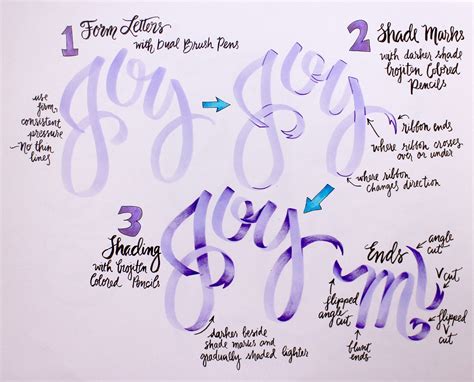 1 Form Letters
with Dual Brush Pens
Joy
use
firm,
consistent
pressure
No thin
lines
2 Shade Marks
with darker shade
Irojiten Colored
Pencils
Joy
ribbon ends
where ribbon crosses
over or under
where ribbon
changes direction
3
Shading
with Irojiten
Colored Pencils
Joy
darker beside
shade marks and
gradually shaded lighter
Ends
m
angle
cut
V cut
flipped
V
cut
flipped
angle
cut
blunt
ends